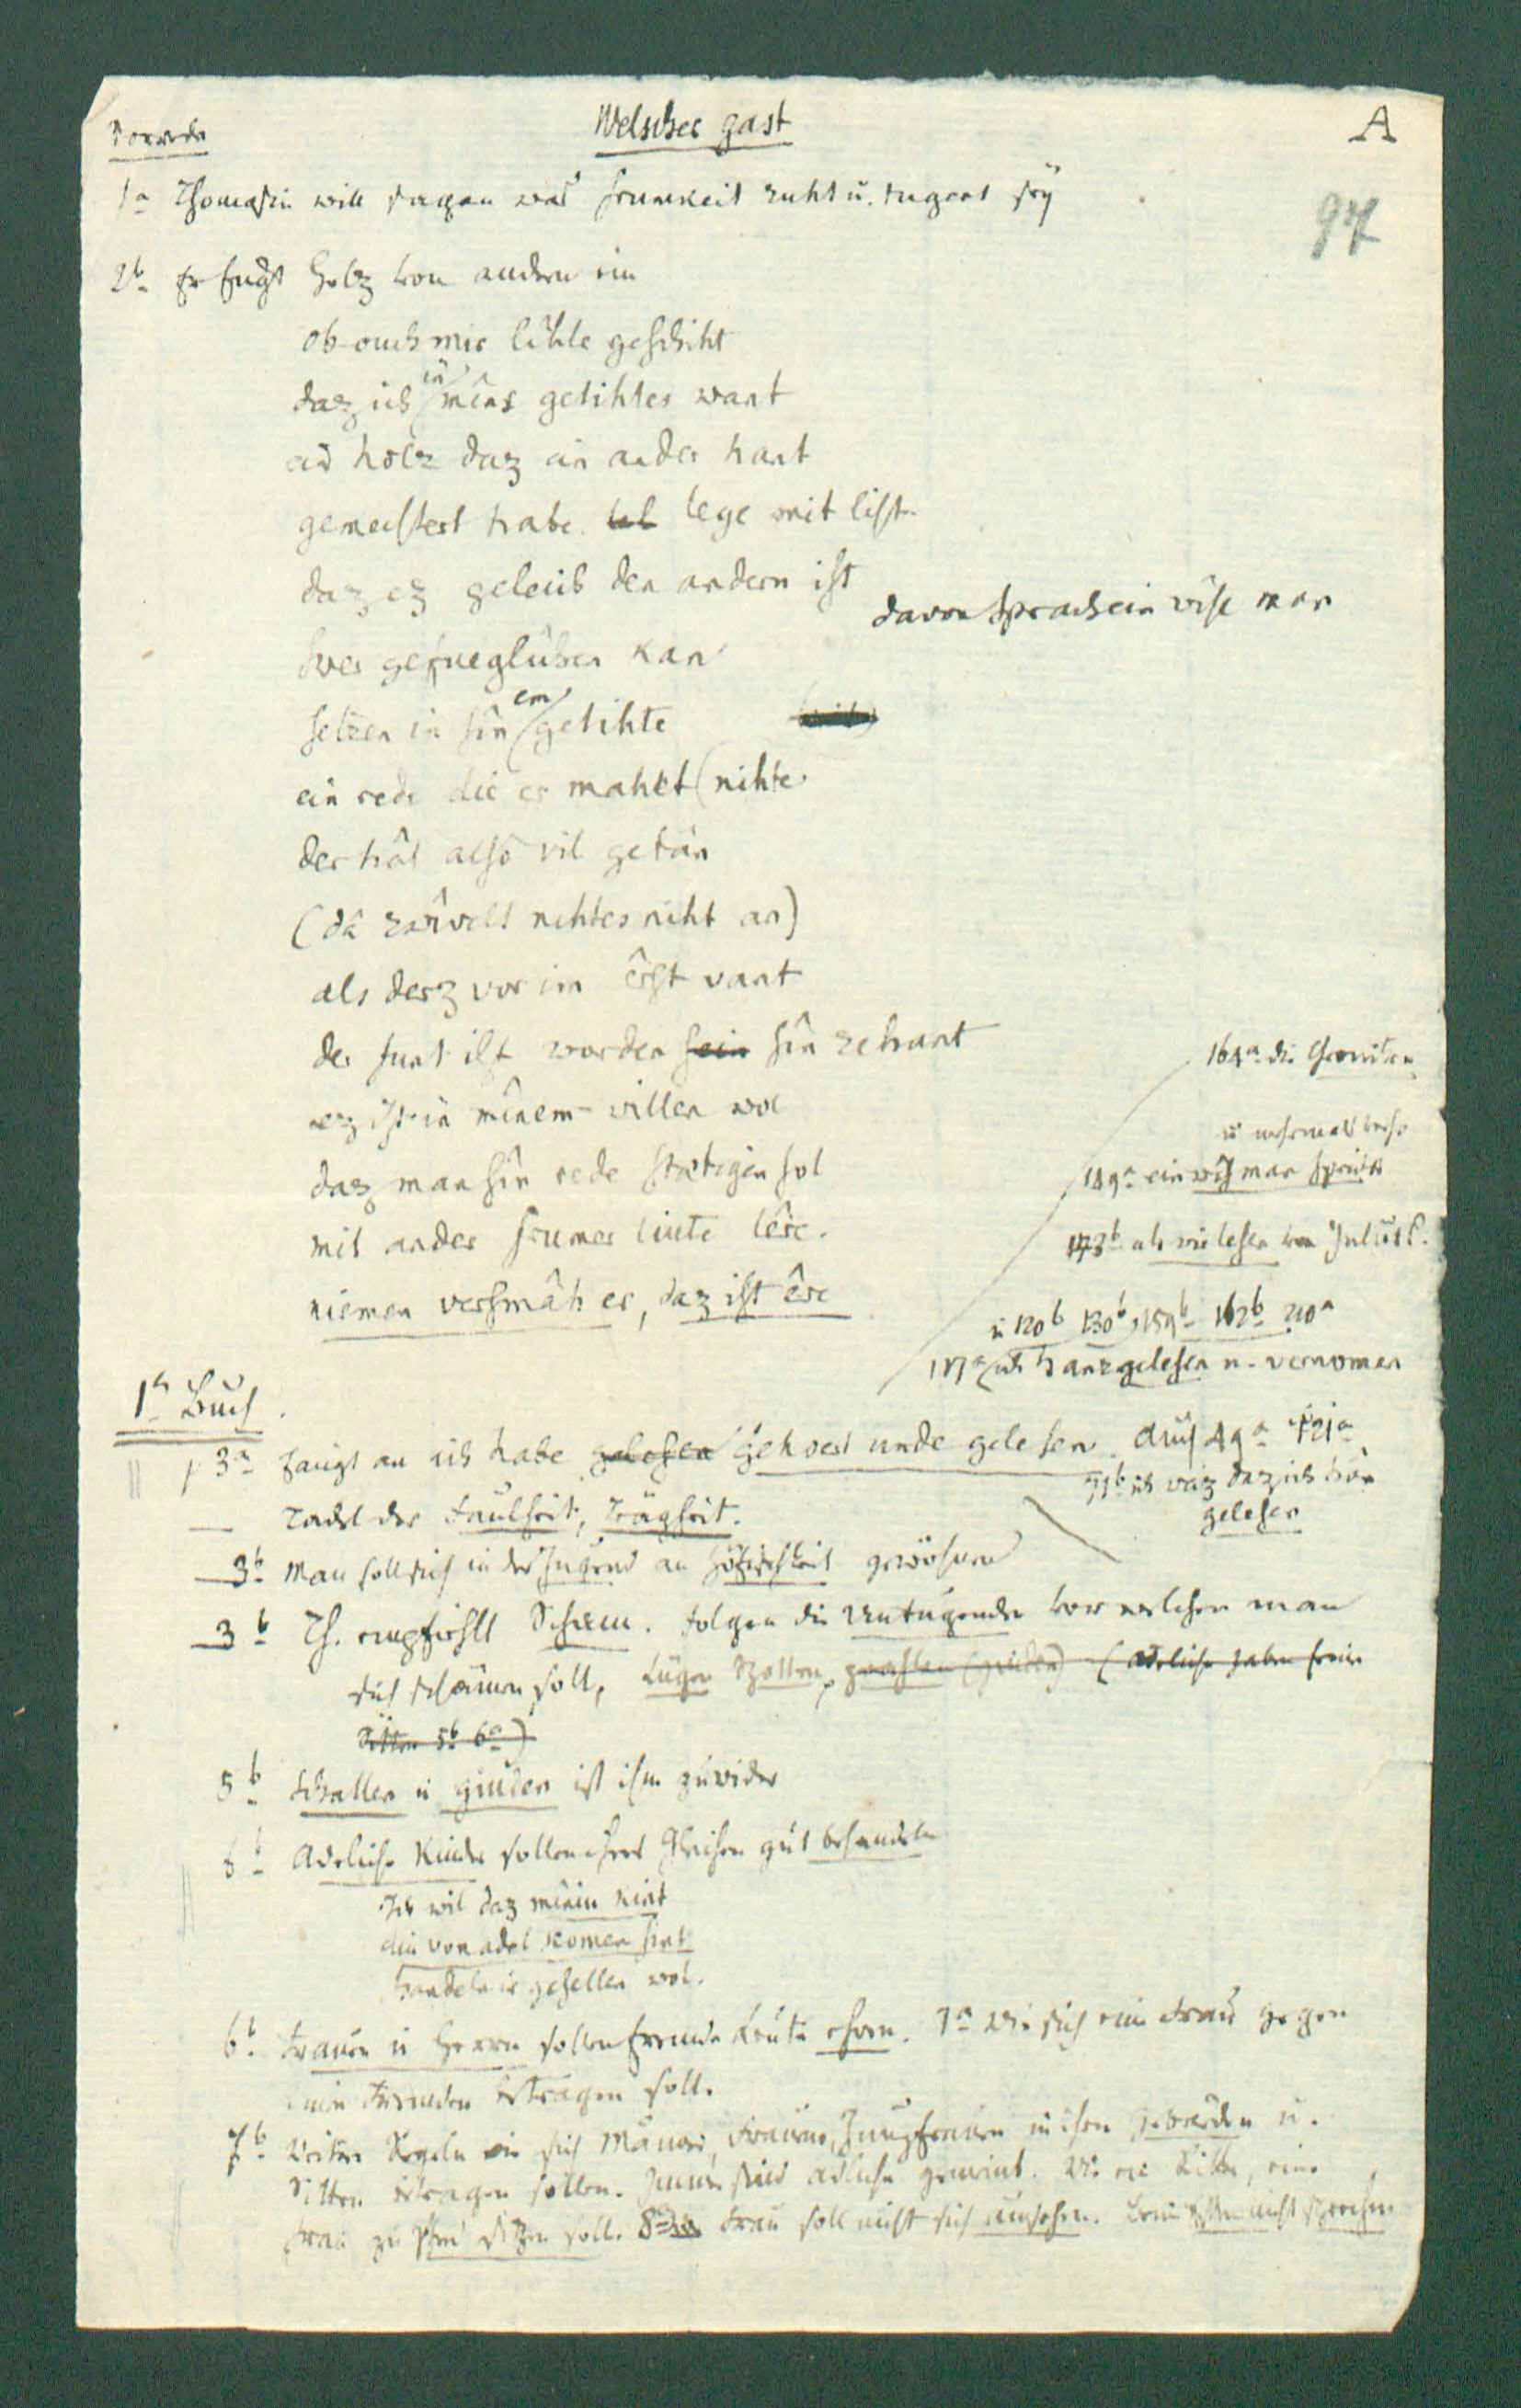 Vorrede
Welscher gast
A
97
1a Thomasin will sagen was frumkeit zuht u. tugent sey
2b Er fügt Holz von andern ein
ob ouch mir lihte geschiht
daz ich in mîns getihtes want
ein holz daz ein ander hant
gemeistert habe lege mit list
daz ez gelich den andern ist
davon sprach ein wise man
swer gefueglichen kan
setzen in sîn em getihte
ein rede die er mahet nihte
der hât also vil getân
(dâ zwîvelt nihtes niht an)
als derz vor im êrst vant
der funt ist worden sîn zehant
ez ist in mînem willen wol
daz man sîn rede stætigen sol
mit ander frumer liute lêre.
niemen versmâh er, daz ist êre
164a die
149a ein wis man sprichet
173b als wir lesen von Julius C.
u 120b 130b, 159b 162b 210a
117a ich hanz gelesen u. vernomen
1s Buch.
3a fangt an ich habe gelesen gehoert unde gelesen. Auch 49a 121a
71b ich weiz daz ich hân
gelesen
Tadel der Faulheit, Trägheit.
3b Man soll sich in der Jugend an Höfischkeit gewöhnen
3b Th. empfiehlt Scham. Folgen die Untugenden vor welchen man
sich schämen soll, Lügen Spotten, prahlen (giuden) (Adeliche haben freie
Sitten 5b 6a)
5b Schallen u giuden ist ihm zuwider
6b Adeliche Kinder sollen ihres Gleichen gut behandeln
Ich wil daz mîniu kint
diu von adel komen sint
handeln ir gesellen wol.
6b Frauen u Herrn sollen fremde Leute ehren. 7a Wie sich eine Frau gegen
einen Fremden betragen soll.
7b Weitere Regeln wie sich Männer, Frauen, Jungfrauen in ihren Gebärden u.
Sitten betragen sollen. Immer sind adliche gemeint. Wie ein Ritter, eine
Frau zu Pferd sitzen soll. 8a Frau soll nicht sich umsehen. Beim Essen nicht sprechen